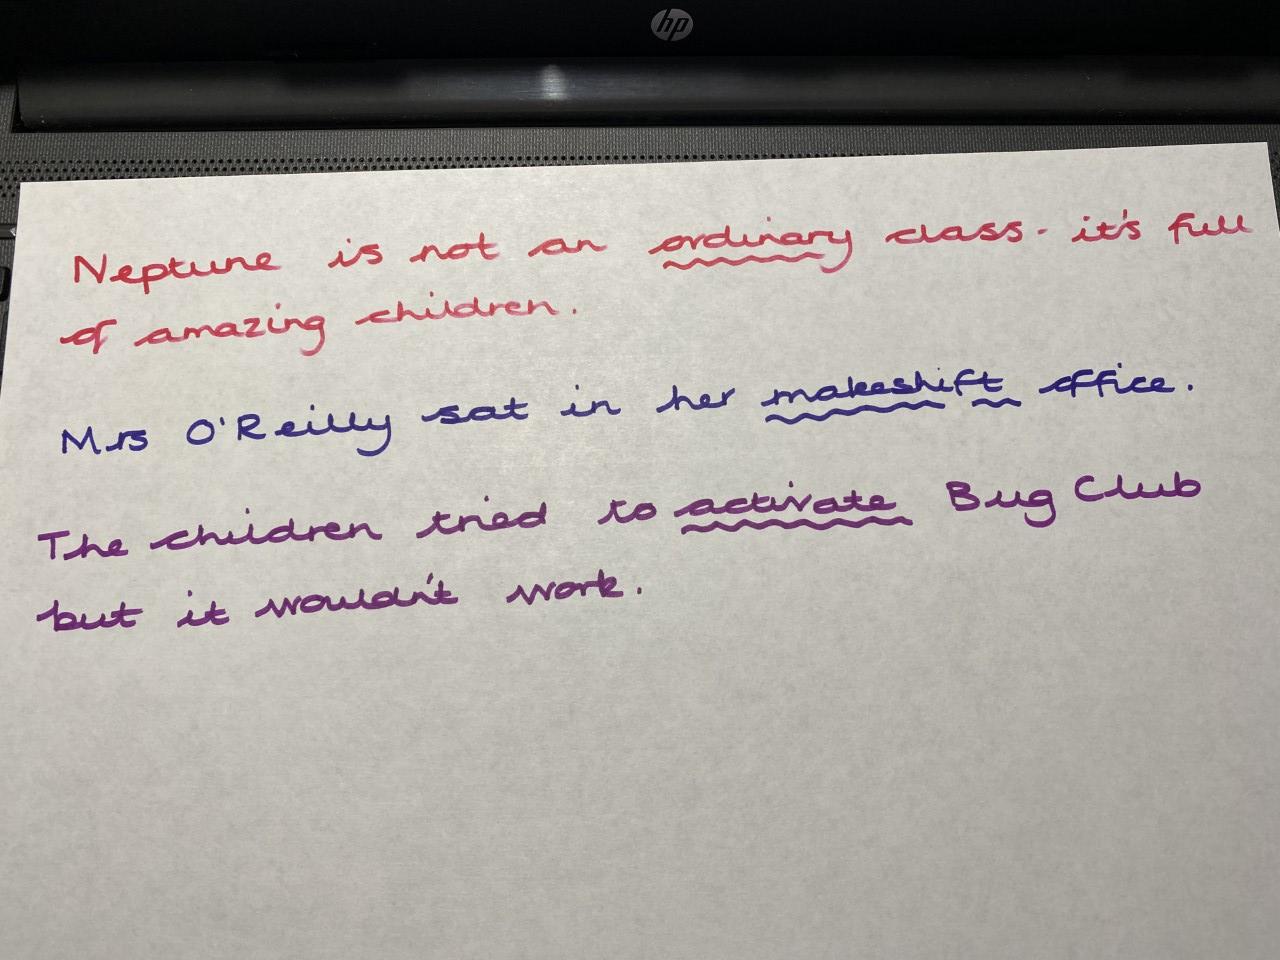 hp
Neptune is not an ordinary class - it's full
of amazing children.
Mrs O'Reilly sat in her makeshift office.
The children tried to activate Bug Club
but it wouldn't work.